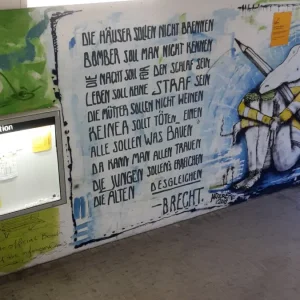 DIE HÄUSER SOLLEN NICHT BRENNEN
BOMBER SOLL MAN NICHT KENNEN
DIE NACHT SOLL FÜR DEN SCHLAF SEIN
LEBEN SOLL KEINE STRAF SEIN
DIE MÜTTER SOLLEN NICHT WEINEN
KEINER SOLLT TÖTEN EINEN
ALLE SOLLEN WAS BAUEN
DA KANN MAN ALLEN TRAUEN
DIE JUNGEN SOLLENS ERREICHEN
DIE ALTEN DESGLEICHEN
BRECHT.
tion